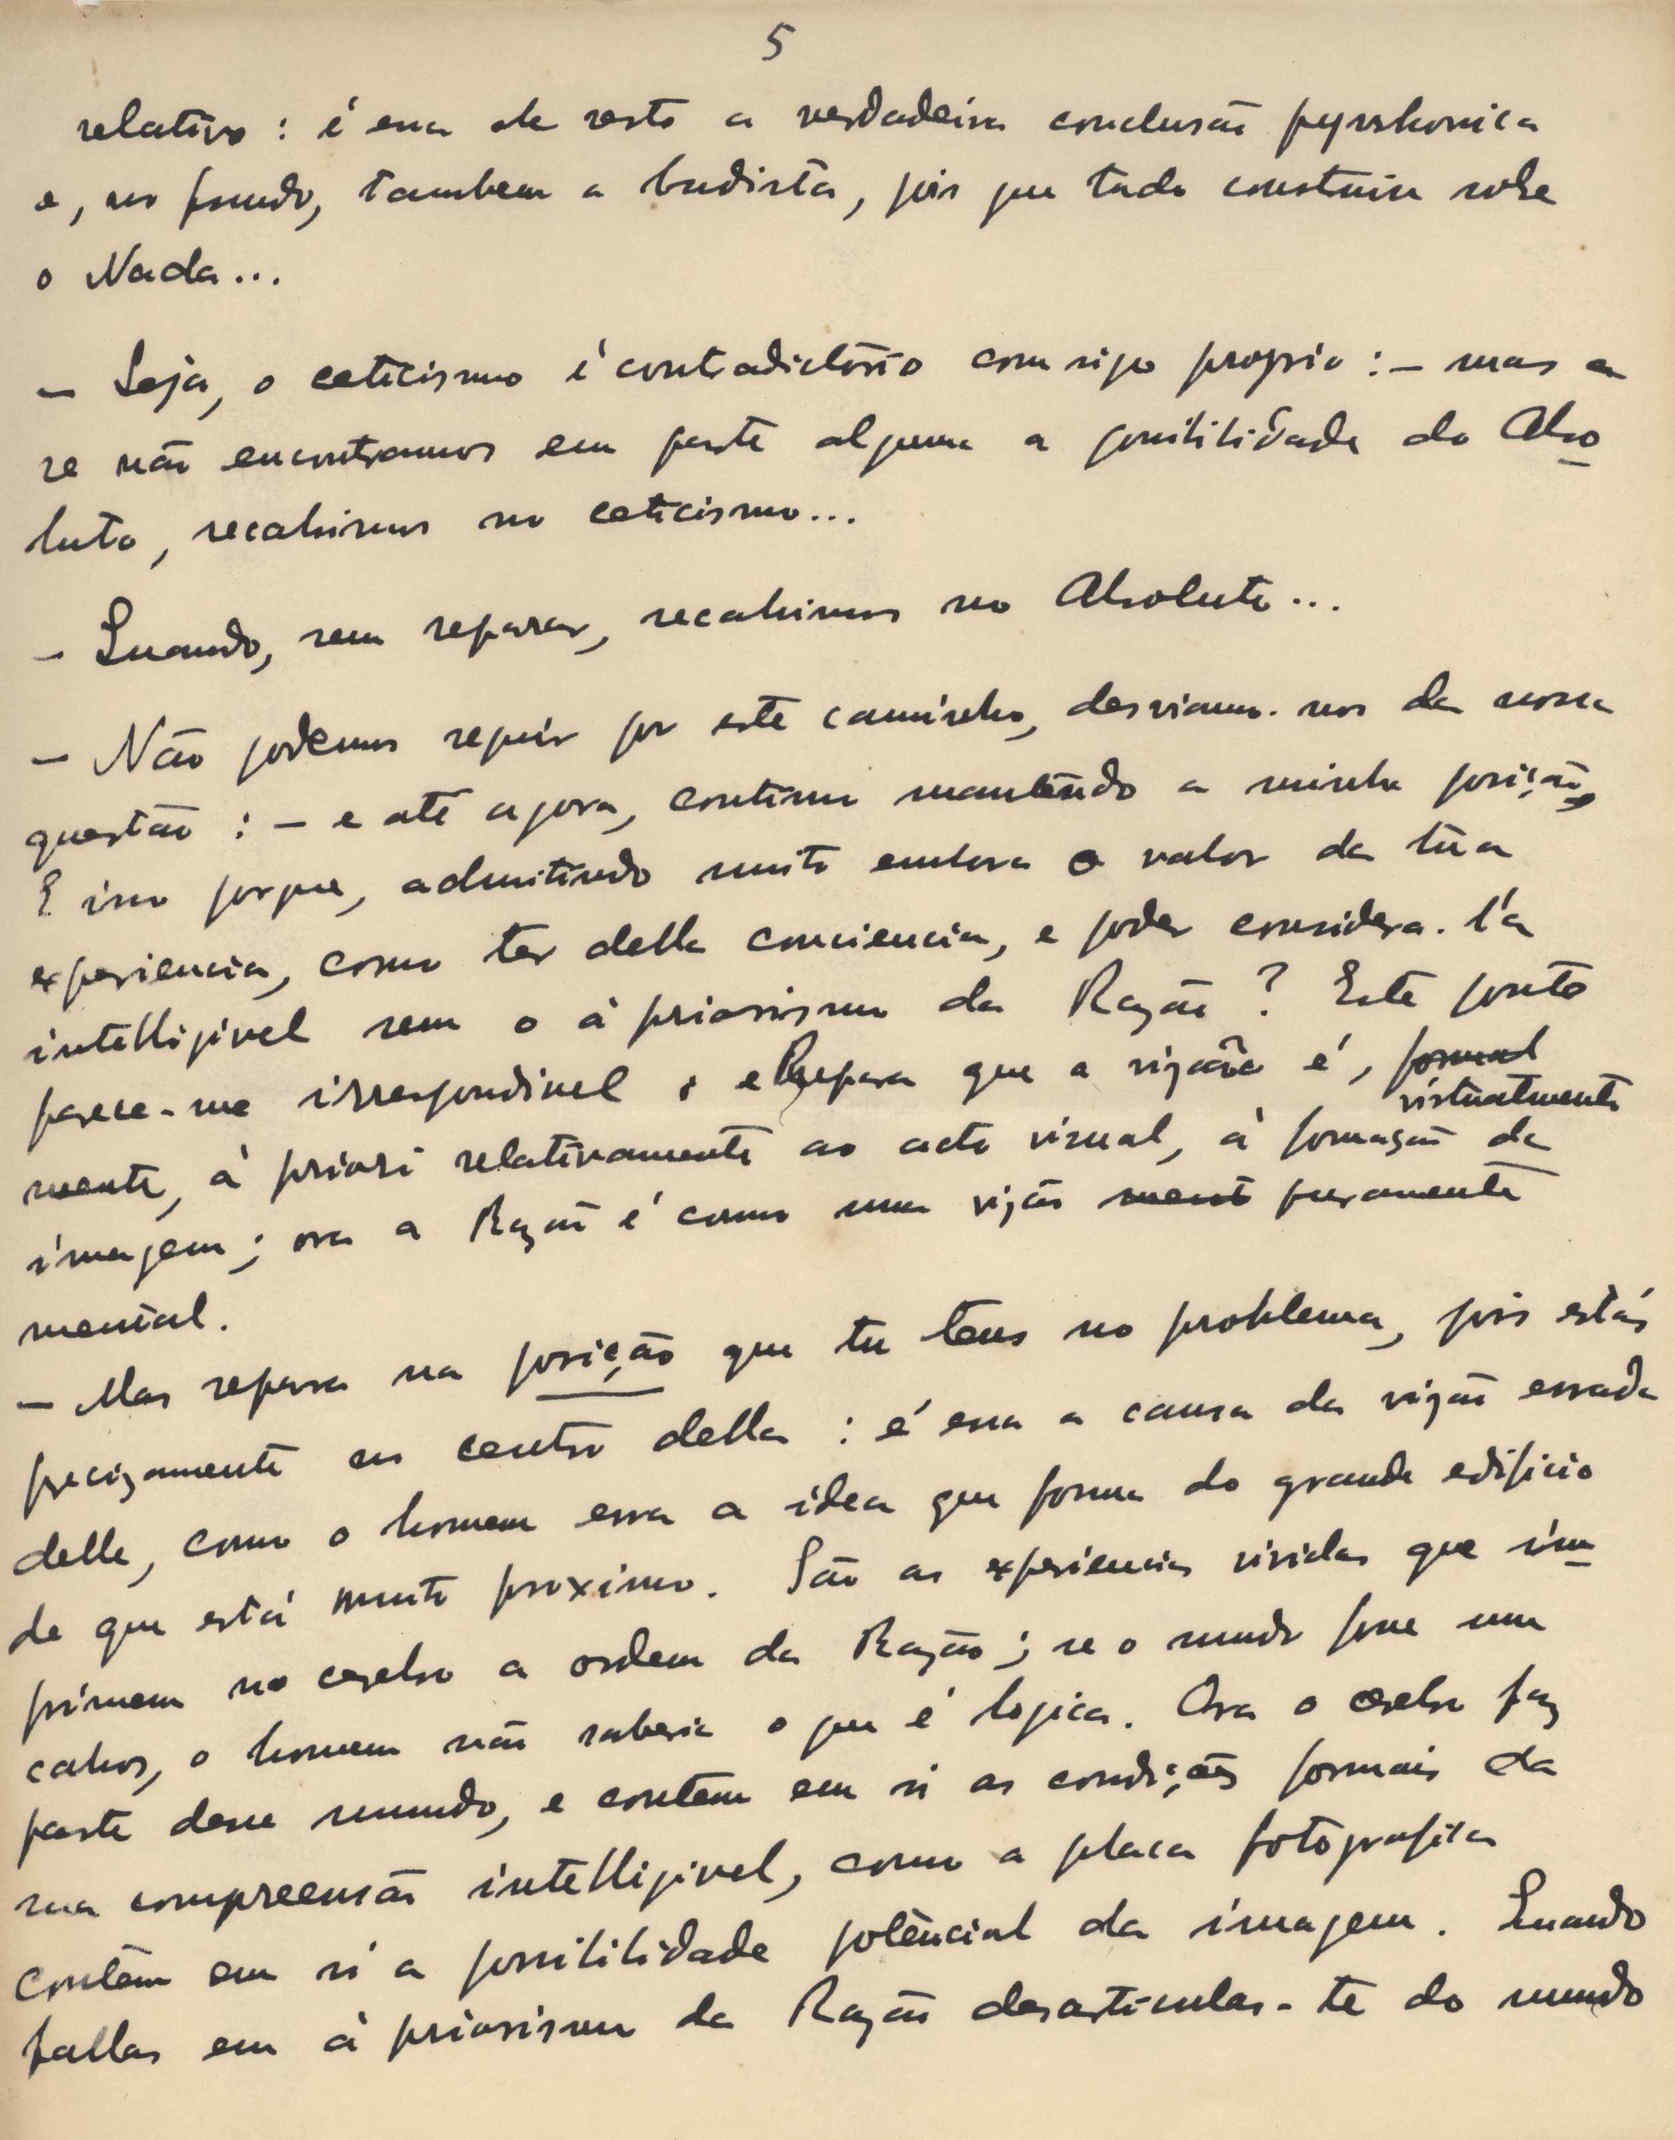 5
relativo : é essa de resto a verdadeira conclusão pyrrhonica
e, no fundo, tambem a budista, pois que tudo construiu sobre
o Nada...
— Seja, o ceticismo é contradictório comsigo proprio : — mas
se não encontramos em parte alguma a possibilidade do Abso
luto, recahimos no ceticismo...
— Quando, sem reparar, recahimos no Absoluto...
— Não podemos seguir por este caminho, desviamo-nos da nossa
questão : — e até agora, continuo mantendo a minha posição,
E isso porque, admitindo muito embora o valor da tua
experiencia, como ter della conciencia, e poder considera-l'a
intelligivel sem o á priorismo da Razão ? Este ponto
parece-me irrespondivel, e Repara que a vizão é, formal
virtualmente
mente, á priori relativamente ao acto visual, á formação da
imagem; ora a Razão é como uma vizão ment puramente
mental.
— Mas repara na posição que tu tens no problema, pois estás
precizamente no centro della : é essa a causa da vizão errada
delle, como o homem erra a idea que forma do grande edificio
de que está muito proximo. São as experiencias vividas que im
primem no cerebro a ordem da Razão; se o mundo fosse um
cahos, o homem não saberia o que é logica. Ora o cerebro faz
parte desse mundo, e contem em si as condições formais da
sua compreensão intelligivel, como a placa fotografica
contêm em si a possibilidade potêncial da imagem. Quando
fallas em á priorismo da Razão desarticulas-te do mundo